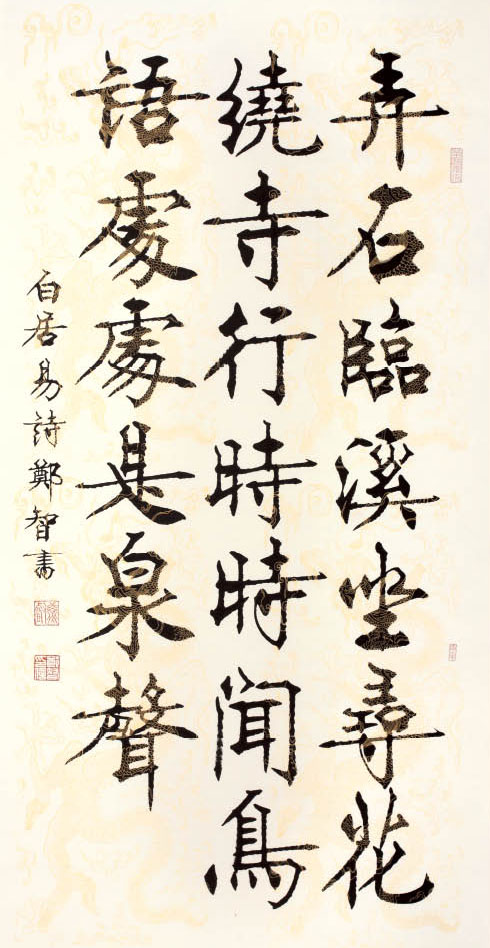 弄石臨溪坐尋花
繞寺行時時聞鳥
語處處是泉聲
白居易詩鄭智書